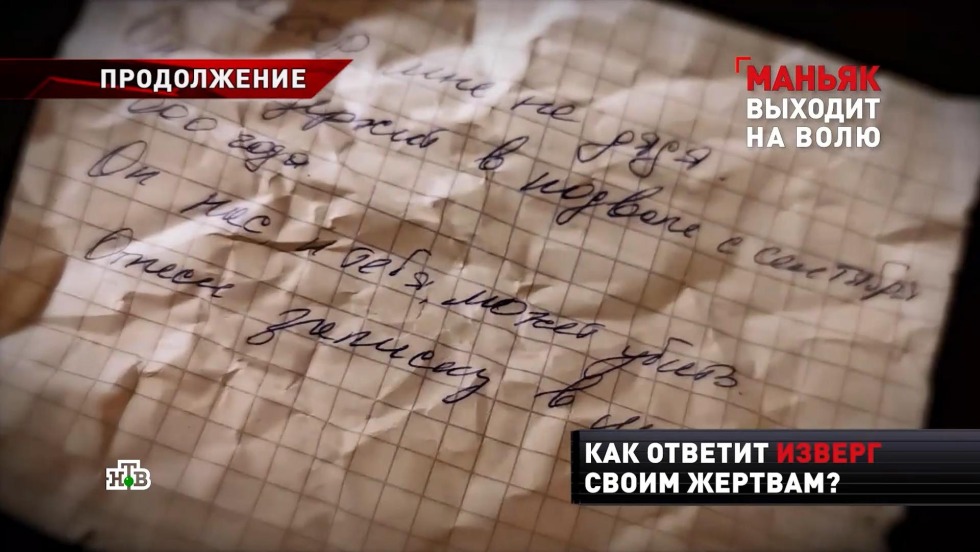 ПРОДОЛЖЕНИЕ
МАНЬЯК
ВЫХОДИТ
НА ВОЛЮ
мне не дядя.
держит в подвале с сентября
000 года.
Он нас и тебя, может убить.
Отнеси записку в
НТВ
КАК ОТВЕТИТ ИЗВЕРГ
СВОИМ ЖЕРТВАМ?